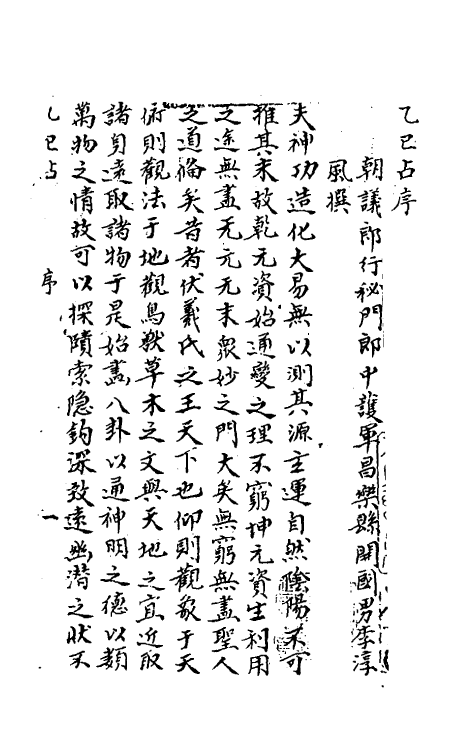 乙巳占序
朝議郎行秘門郎中護軍昌樂縣開國男李淳
風撰
夫神功造化大易無以測其源主運自然陰陽不可
推其末故乾元資始通變之理不窮坤元資生利用
之途無盡无元无末眾妙之門大矣無窮無盡聖人
之道備矣昔者伏羲氏之王天下也仰則觀象于天
俯則觀法于地觀鳥獸草木之文與天地之宜近取
諸身遠取諸物于是始畫八卦以通神明之德以類
萬物之情故可以探賾索隱鈎深致遠幽潛之狀不
乙巳占 序 一